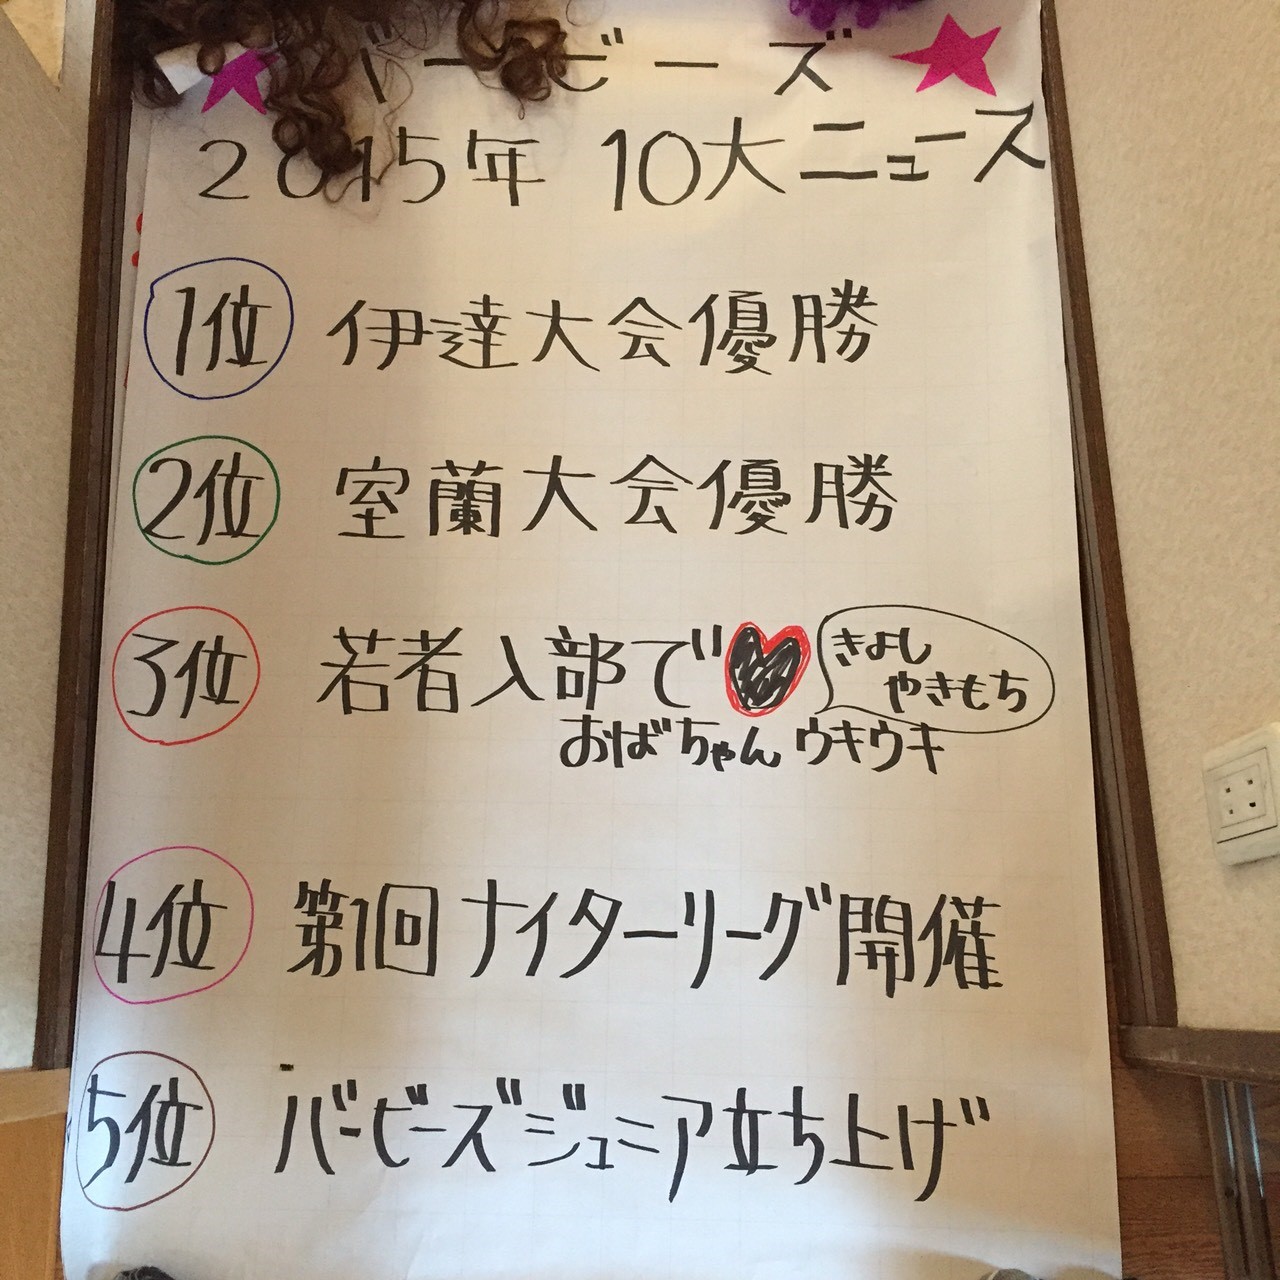 バービーズ
2015年 10大ニュース
1位 伊達大会優勝
2位 室蘭大会優勝
3位 若者入部で♥ きよし
やきもち
おばちゃん ウキウキ
4位 第1回 ナイターリーグ開催
5位 バービーズジュニア立ち上げ